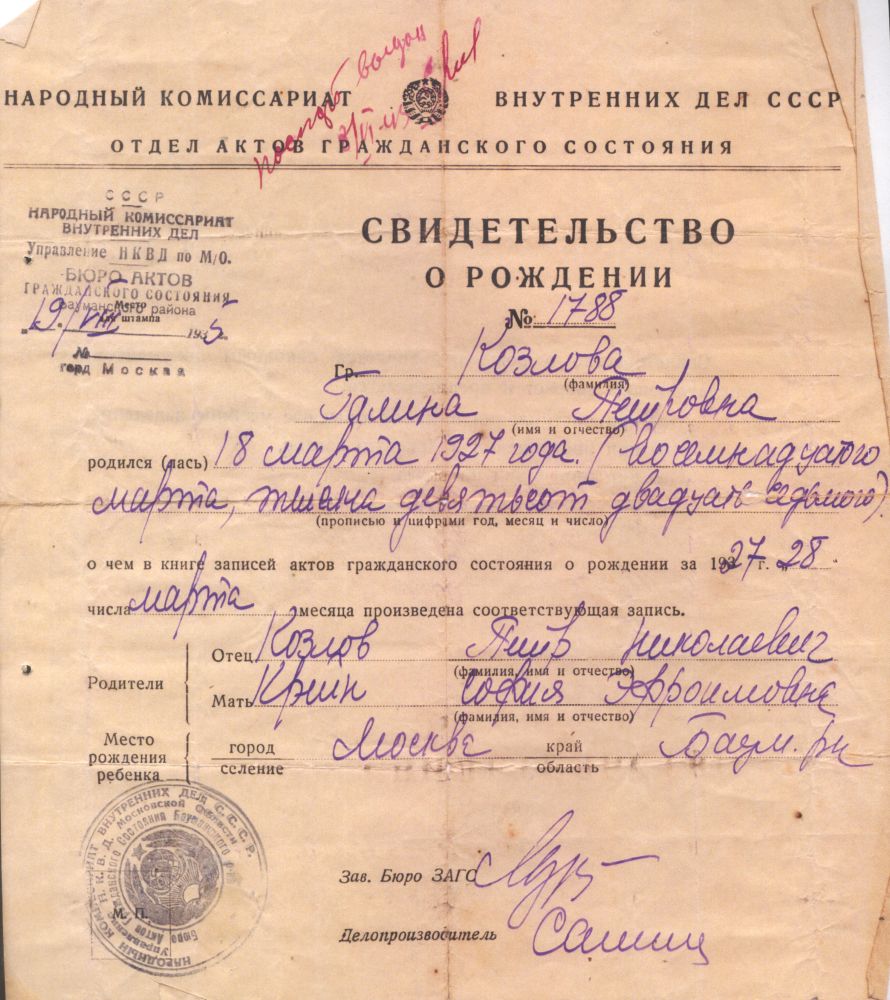 выдан
НАРОДНЫЙ КОМИССАРИАТ ВНУТРЕННИХ ДЕЛ СССР
ОТДЕЛ АКТОВ ГРАЖДАНСКОГО СОСТОЯНИЯ
СССР
НАРОДНЫЙ КОМИССАРИАТ
ВНУТРЕННИХ ДЕЛ
Управление НКВД по М/О.
БЮРО АКТОВ
ГРАЖДАНСКОГО СОСТОЯНИЯ
Бауманского района
Место
для штампа
"19/VIII 1935г.
№
город Москва
СВИДЕТЕЛЬСТВО
О РОЖДЕНИИ
№ 1788
Гр. Козлова
(фамилия)
Галина Петровна
(имя и отчество)
родился (лась) 18 марта 1927 года. (восемнадцатого
марта, тысяча девятьсот двадцать седьмого).
(прописью и цифрами год, месяц и число)
о чем в книге записей актов гражданского состояния о рождении за 1927 г. „28
числа марта месяца произведена соответствующая запись.
Родители
Отец Козлов Петр Николаевич
(фамилия, имя и отчество)
Мать Крейн София Эфроимовна
(фамилия, имя и отчество)
Место
рождения
ребенка
город
селение
Москва
край
область
Баум. рн
НАРОДНЫЙ КОМИССАРИАТ ВНУТРЕННИХ ДЕЛ С.С.С.Р.
Управление Н.К.В.Д. Московской Области
Бюро Актов Гражданского Состояния Бауманского р-на
М. П.
Зав. Бюро ЗАГС
Делопроизводитель